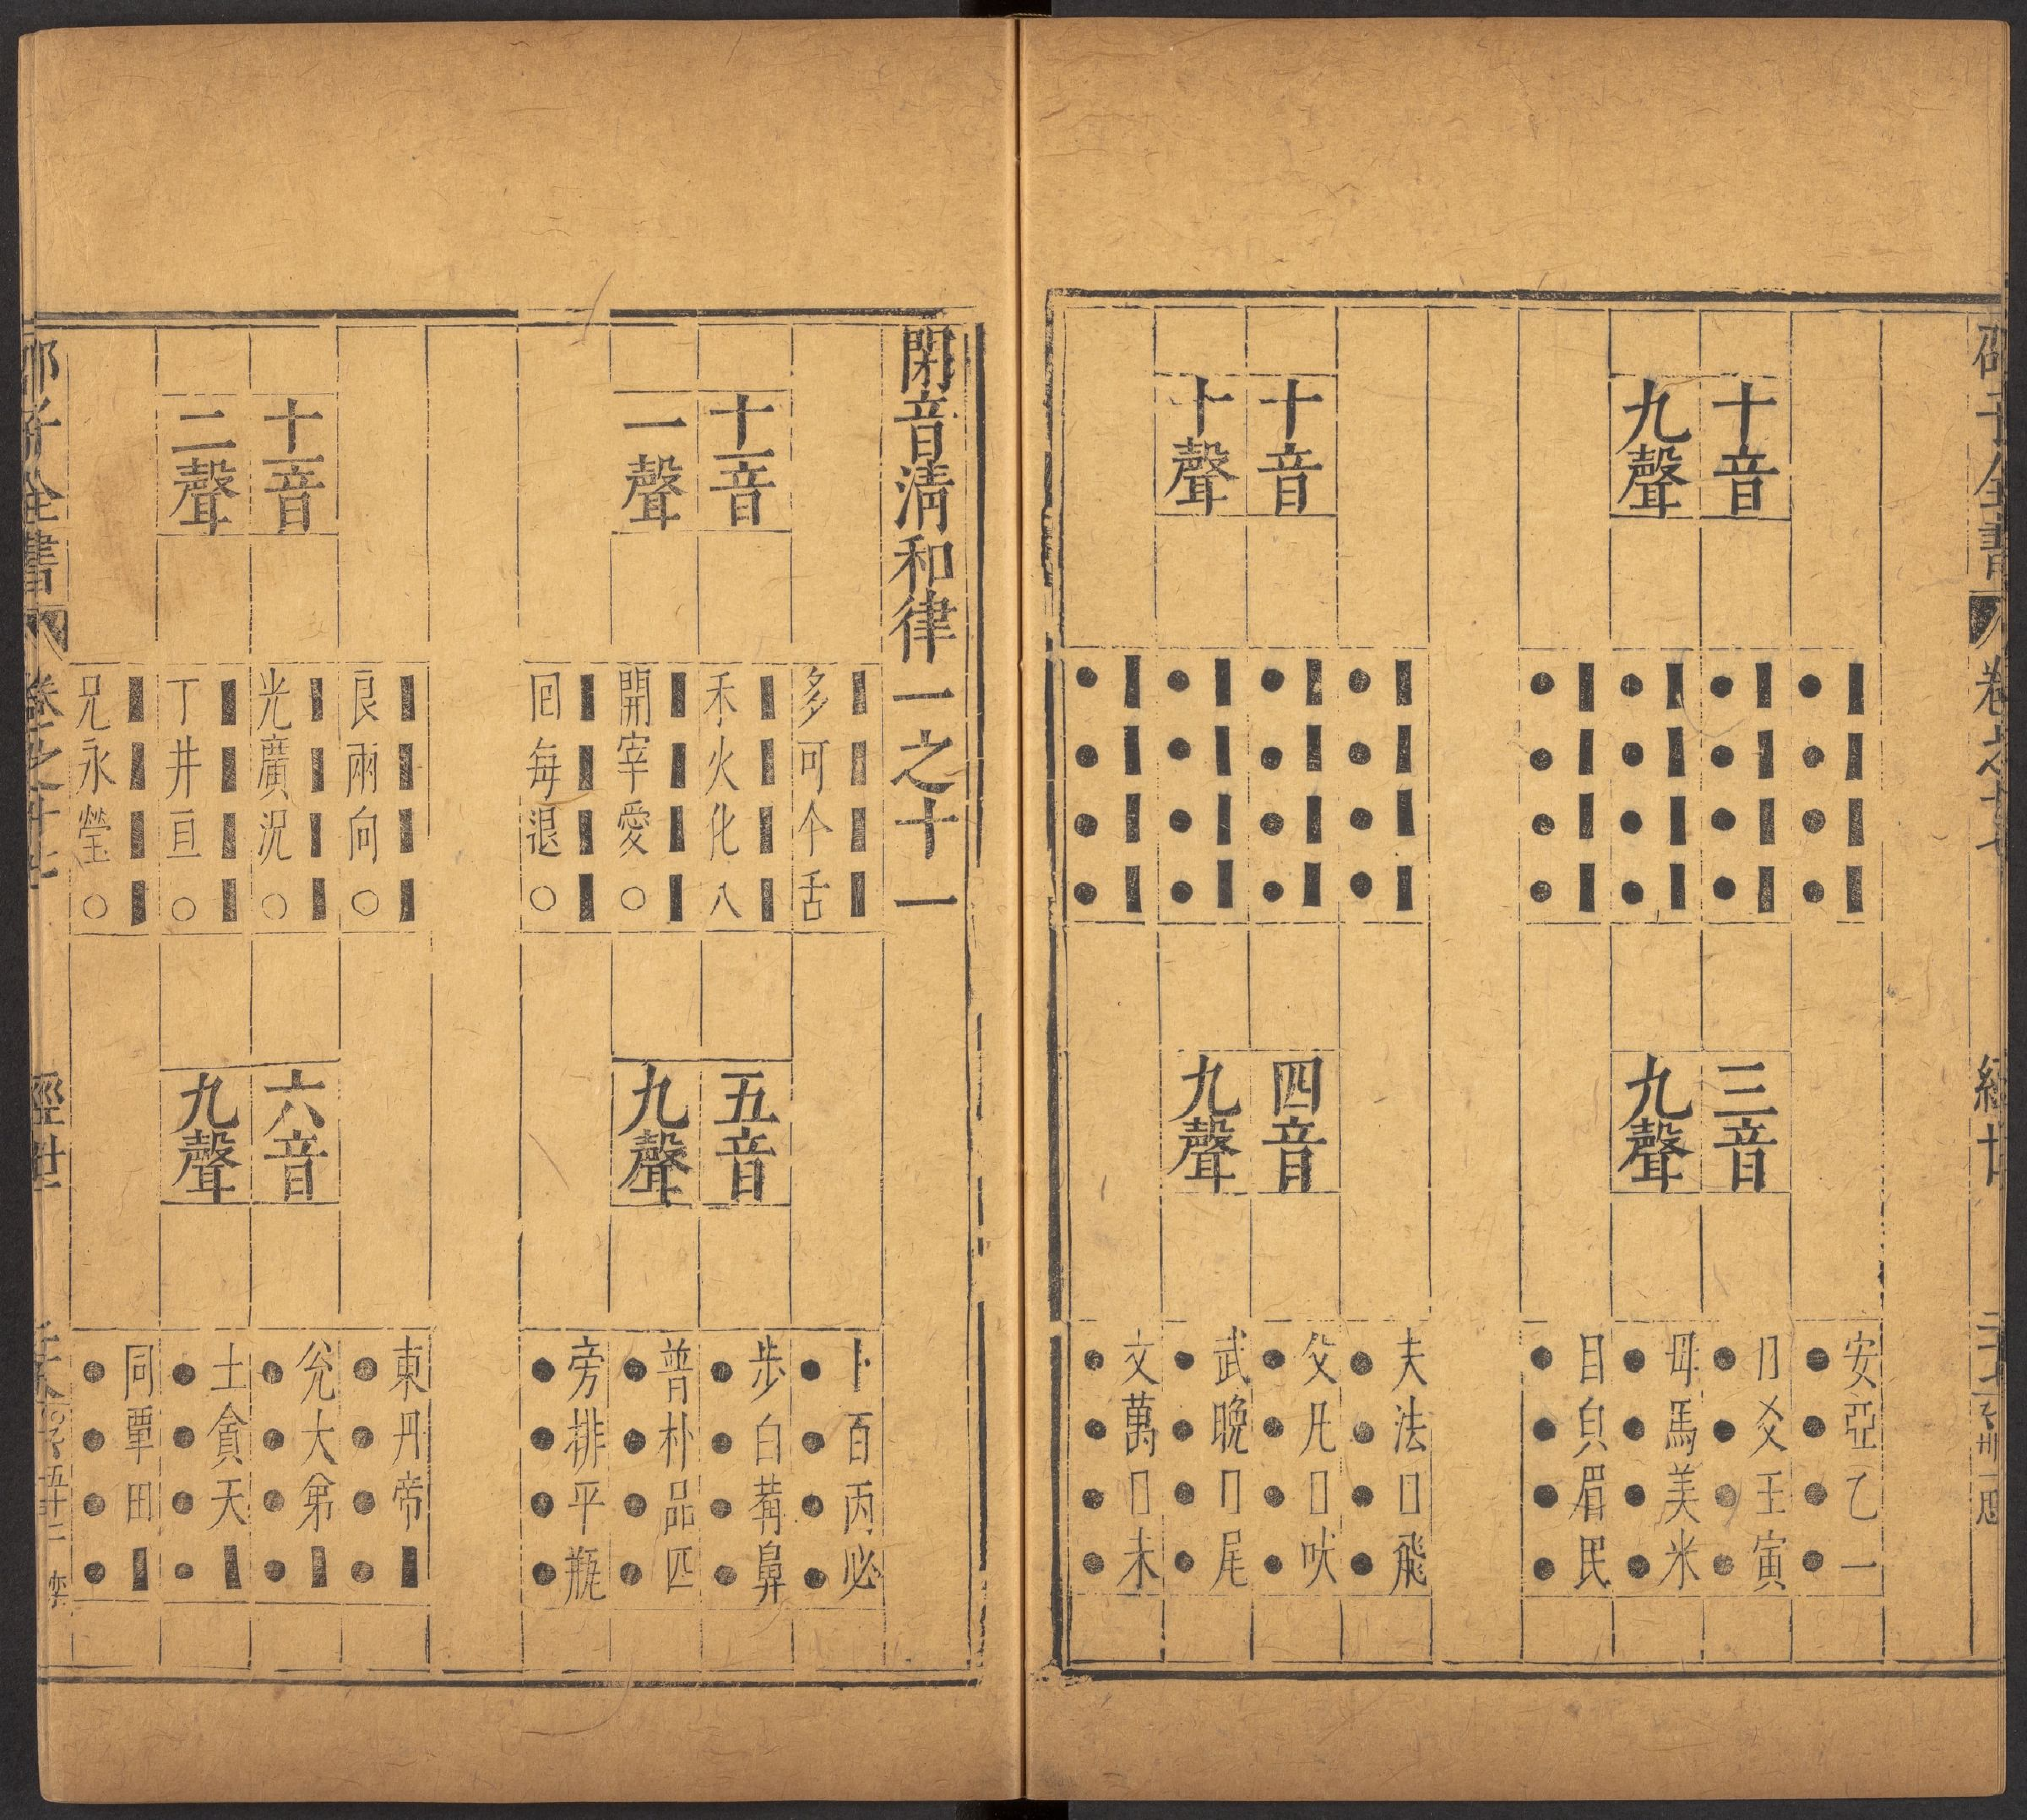 十音
九聲
▮▮▮▮
●●●●
▮▮▮▮
●●●●
▮▮▮▮
●●●●
▮▮▮▮
●●●●
三音
九聲
安亞乙一
●●●●
𠕇爻王寅
●●●●
母馬美米
●●●●
目皃眉民
●●●●
十音
十聲
▮▮▮▮
●●●●
▮▮▮▮
●●●●
▮▮▮▮
●●●●
▮▮▮▮
●●●●
四音
九聲
夫法□飛
●●●●
父凡□吠
●●●●
武晚□尾
●●●●
文萬□未
●●●●
閉音清和律一之十一
十一音
一聲
▮▮▮▮
多可个舌
▮▮▮▮
禾火化八
▮▮▮▮
開宰愛○
▮▮▮▮
回每退○
五音
九聲
卜百丙必
●●●●
步白葋鼻
●●●●
普朴品匹
●●●●
旁排平瓶
●●●●
十一音
二聲
▮▮▮▮
良兩向○
▮▮▮▮
光廣況○
▮▮▮▮
丁井亘○
▮▮▮▮
兄永瑩○
六音
九聲
東丹帝▮
●●●●
兊大弟▮
●●●●
土貪天▮
●●●●
同覃田▮
●●●●
邵子全書 卷之十七 經世